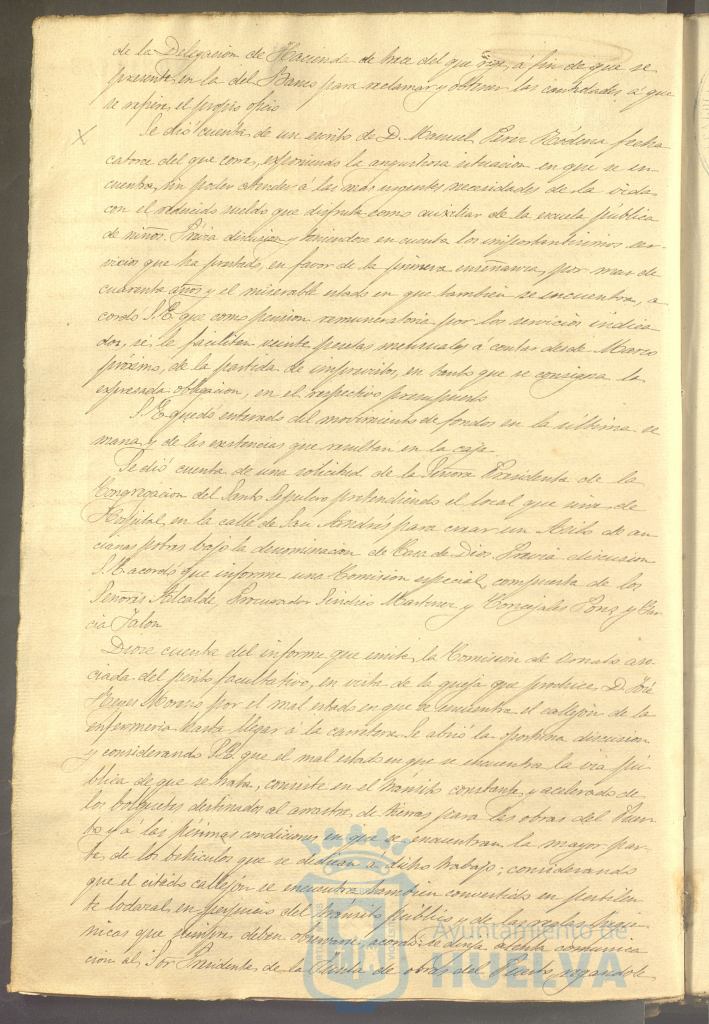 de la Delegacion de Hacienda de trece del que rije, á fin de que se
presente en la del Banco para reclamar y obtener las cantidades á que
se refiere el propio oficio
Se dió cuenta de un escrito de D. Manuel Perez Ródena fecha
catorce del que corre, exponiendo la angustiosa situacion en que se en-
cuentra, sin poder atender á las mas urgentes necesidades de la vida
con el reducido sueldo que disfruta como auxiliar de la escuela pública
de niños. Prévia discusion y teniendose en cuenta los importantísimos ser-
vicios que ha prestado, en favor de la primera enseñanza, por mas de
cuarenta años y el miserable estado en que tambien se encuentra, a
cordó S.E. que como pension remuneratoria por los servicios indica
dos, se le faciliten veinte pesetas mensuales á contar desde Marzo
próximo, de la partida de imprevistos, en tanto que se consigna la
expresada obligacion, en el respectivo presupuesto
S.E. quedó enterado del movimiento de fondos en la última se
mana y de las existencias que resultan en la caja
Se dió cuenta de una solicitud de la Señora Presidenta de la
Congregacion del Santo Sepulcro pretendiendo el local que sirve de
Hospital, en la calle de San Andrés para crear un Asilo de an
cianas pobres bajo la denominacion de Casa de Dios. Previa discusion
S.E. acordó que informe una Comision especial, compuesta de los
Señores Alcalde, Procurador Síndico Martinez y Concejales Ponz y Gar
cia Jalon
Diose cuenta del informe que emite, la Comisión de Ornato aso
ciada del perito facultativo, en vista de la queja que produce D. José
Reyes Moreno por el mal estado en que se encuentra el callejón de la
enfermeria hasta llegar á la carretera. Se abrió la oportuna discusion
y considerando S.E. que el mal estado en que se encuentra la via pú-
blica de que se trata, consiste en el tránsito constante, y acelerado de
los bolquetes destinados al arrastre, de tierras para las obras del Puer-
to y á las pésimas condiciones en que se encuentran la mayor par-
te, de los vehículos que se dedican a dicho trabajo; considerando
que el citado callejón se encuentra tambien convertido en pestilen
te lodazal, en perjuicio del tránsito público y de las reglas higié-
nicas que siempre deben observarse, acordó se dirija atenta comunica
cion al Sor Presidente de la Junta de obras del Puerto, rogandole
Ayuntamiento de
HUELVA